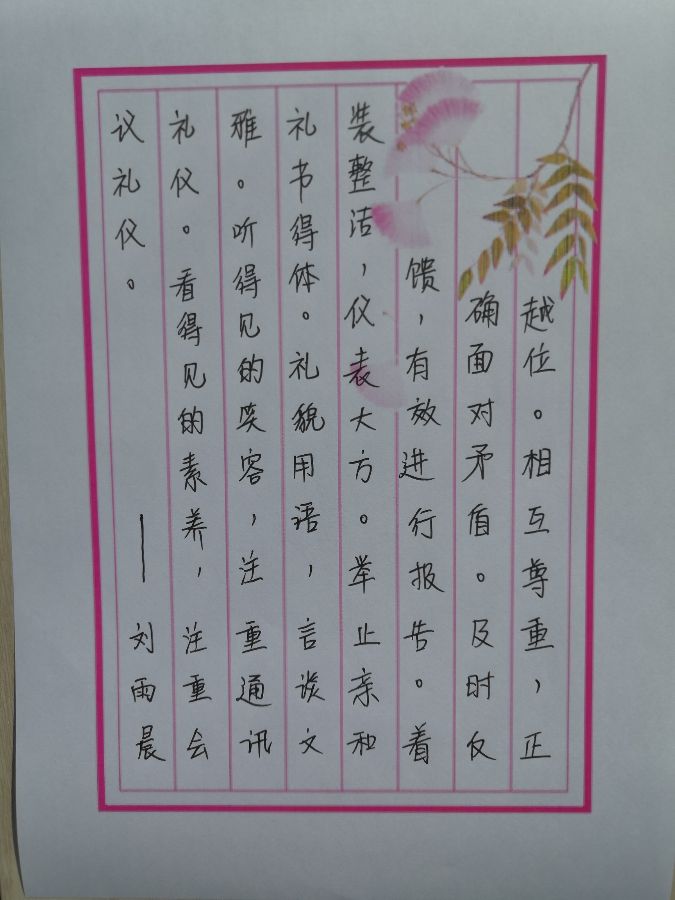 越位。相互尊重，正
确面对矛盾。及时反
馈，有效进行报告。着
装整洁，仪表大方。举止亲和
礼书得体。礼貌用语，言谈文
雅。听得见的笑容，注重通讯
礼仪。看得见的素养，注重会
议礼仪。——刘雨晨